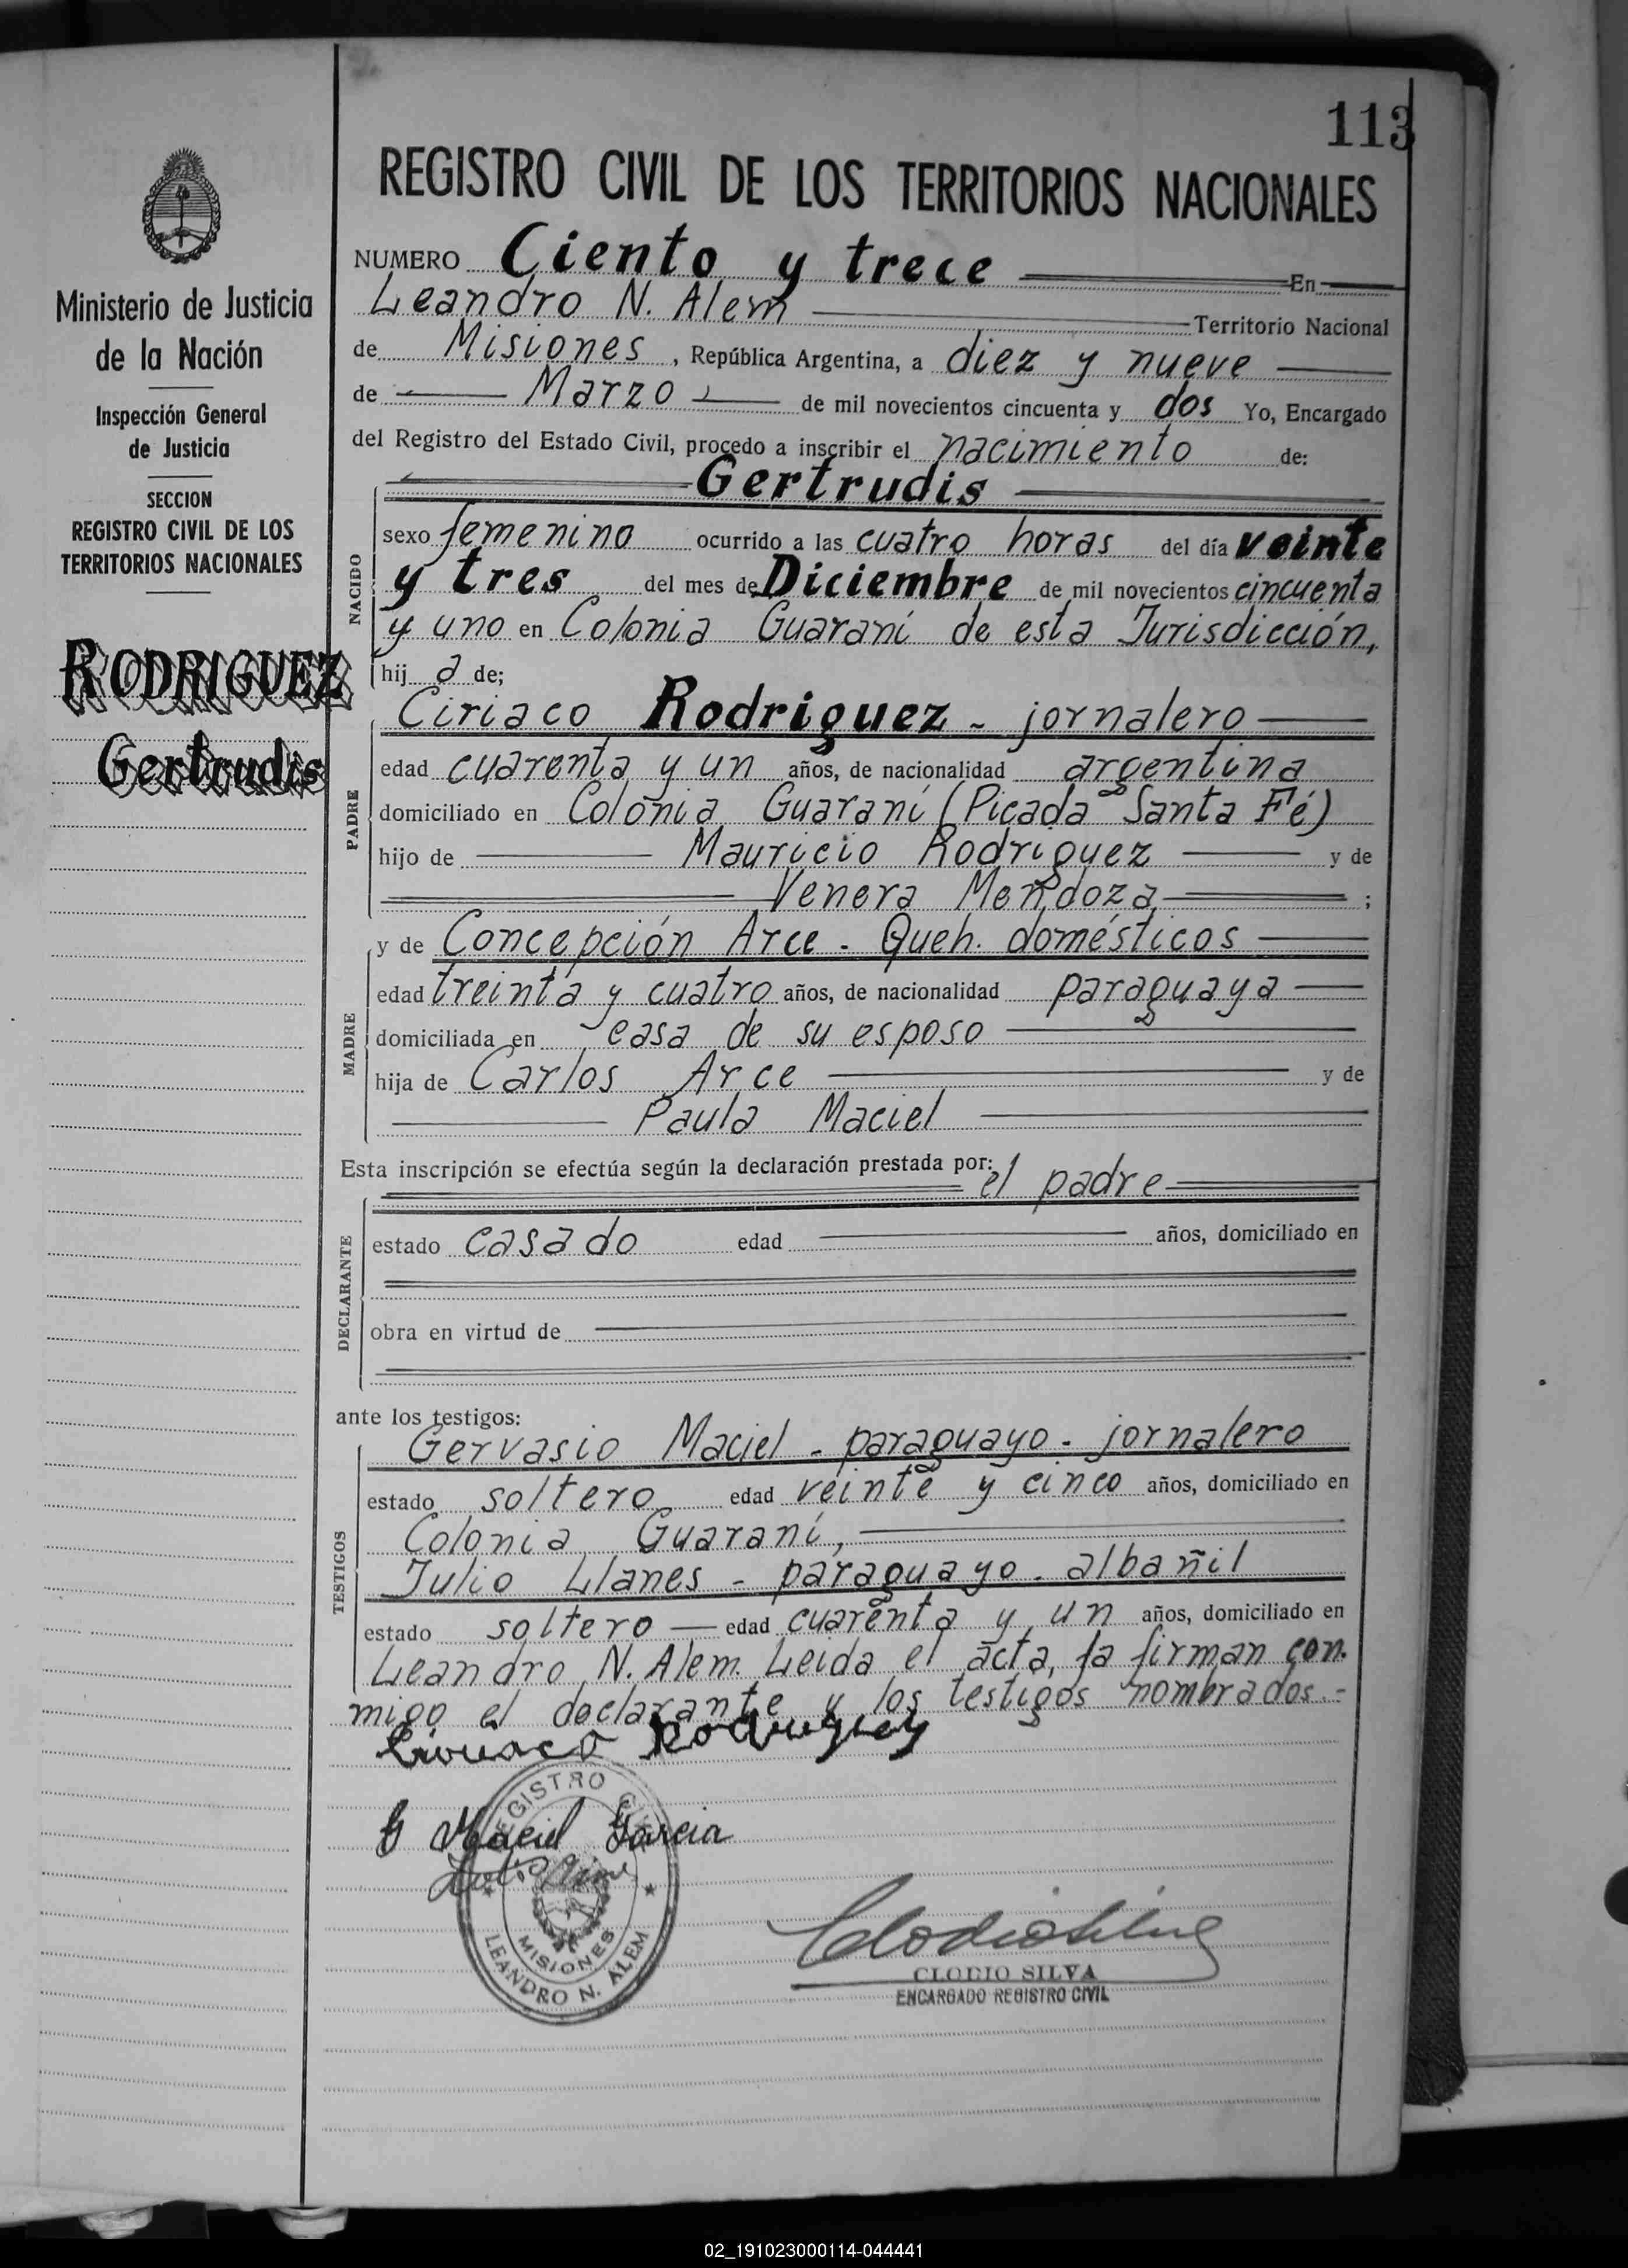 113
REGISTRO CIVIL DE LOS TERRITORIOS NACIONALES
Ministerio de Justicia
de la Nación
Inspección General
de Justicia
SECCION
REGISTRO CIVIL DE LOS
TERRITORIOS NACIONALES
RODRIGUEZ
Gertrudis
NUMERO Ciento y trece En
Leandro N. Alem Territorio Nacional
de Misiones, República Argentina, a diez y nueve
de Marzo de mil novecientos cincuenta y dos Yo, Encargado
del Registro del Estado Civil, procedo a inscribir el nacimiento de:
Gertrudis
NACIDO
sexo femenino ocurrido a las cuatro horas del día veinte
y tres del mes de Diciembre de mil novecientos cincuenta
y uno en Colonia Guaraní de esta Jurisdicción,
hij a de;
PADRE
Ciriaco Rodriguez - jornalero
edad cuarenta y un años, de nacionalidad argentina
domiciliado en Colonia Guaraní (Picada Santa Fé)
hijo de Mauricio Rodriguez y de
Venera Mendoza ;
MADRE
y de Concepción Arce - Queh. domésticos
edad treinta y cuatro años, de nacionalidad paraguaya
domiciliada en casa de su esposo
hija de Carlos Arce y de
Paula Maciel
Esta inscripción se efectúa según la declaración prestada por:
el padre
DECLARANTE
estado casado edad años, domiciliado en
obra en virtud de
ante los testigos:
TESTIGOS
Gervasio Maciel - paraguayo - jornalero
estado soltero edad veinte y cinco años, domiciliado en
Colonia Guaraní,
Julio Llanes - paraguayo - albañil
estado soltero edad cuarenta y un años, domiciliado en
Leandro N. Alem. Leida el acta, la firman con-
migo el declarante y los testigos nombrados.-
Ciriaco Rodriguez
G Maciel Garcia
REGISTRO CIVIL
MISIONES
LEANDRO N. ALEM
Clodio Silva
CLODIO SILVA
ENCARGADO REGISTRO CIVIL
02_191023000114-044441